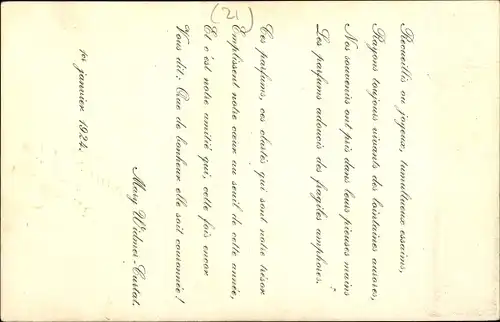 (21)
Recueillis ou joyeux, tumultueux essaims,
Rayons toujours vivants des lointaines aurores,
Nos souvenirs ont pris dans leurs pieuses mains
Les parfums adoucis des fragiles amphores.
Ces parfums, ces clartés qui sont notre trésor
Emplissent notre cœur au seuil de cette année,
Et c'est notre amitié qui, cette fois encor
Vous dit: Que de bonheur elle soit couronnée!
Mary Widmer-Curtat.
1er janvier 1924.